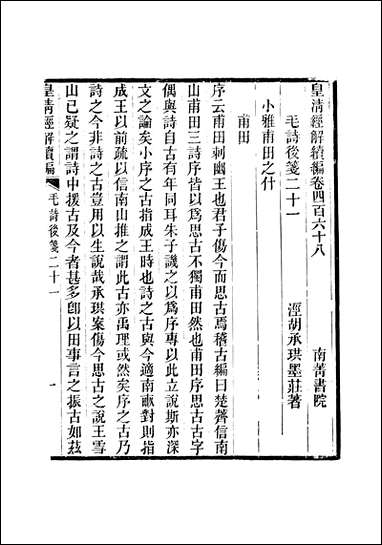 皇清經解續編卷四百六十八　南菁書院
毛詩後箋二十一　涇胡承珙墨莊著
小雅甫田之什
甫田
序云甫田刺幽王也君子傷今而思古焉稽古編曰楚薺信南
山甫田三詩序皆以爲思古不獨甫田然也甫田序思古古字
偶與詩自古有年同耳朱子譏之以爲序專以此立說斯亦深
文之論矣小序之古指成王時也詩之古與今適南畝對則指
成王以前疏以信南山推之謂此古亦禹理或然矣序之古乃
詩之今非詩之古豈用以生說哉承珙案傷今思古之說王雪
山已疑之謂詩中援古及今者甚多卽以田事言之振古如茲
皇清經解續編　毛詩後箋二十一　一